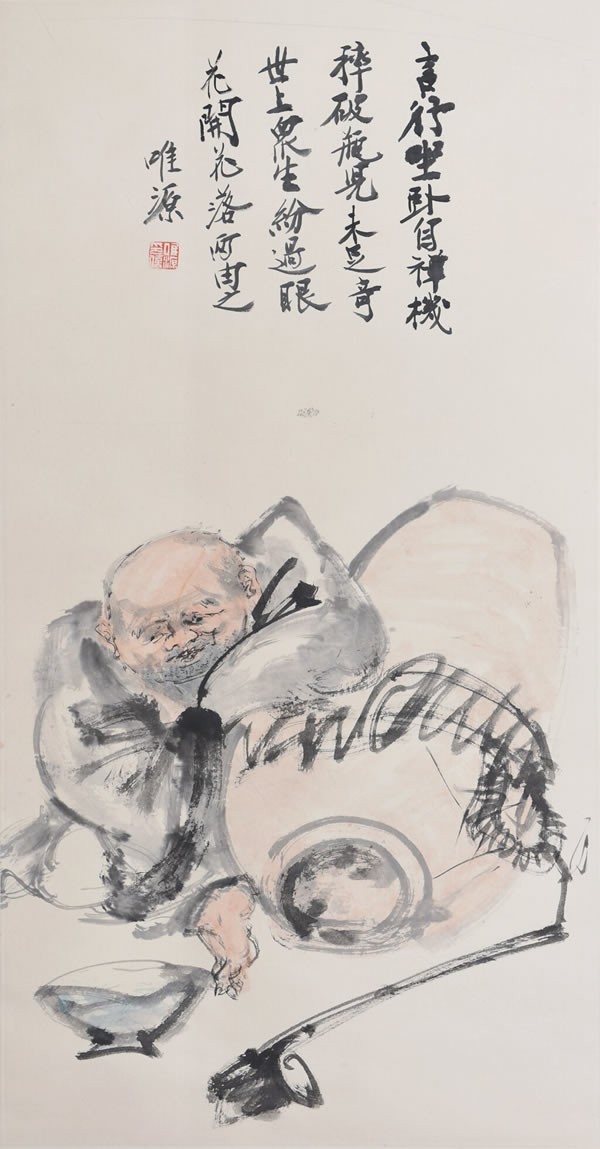 言行坐卧自禅機
破瓶兒未足奇
世上眾生紛過眼
花開花落两由之
唯源